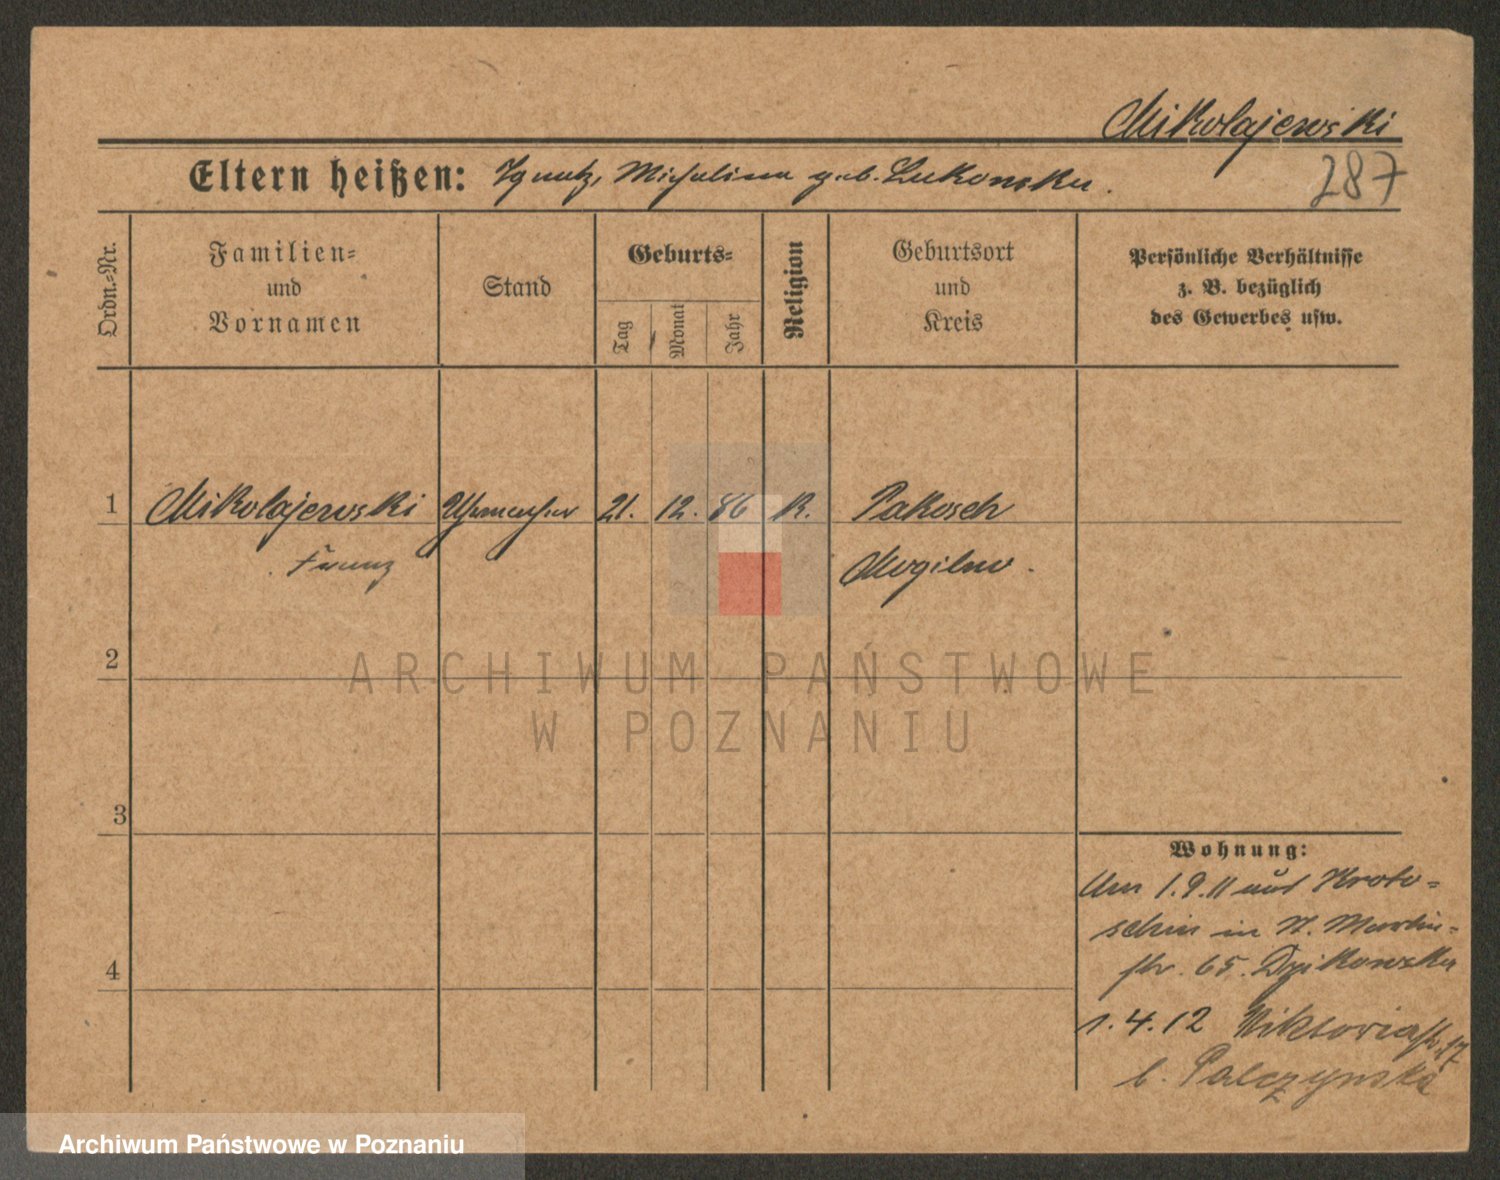 Mikolajewski
287
Eltern heißen: Ignatz, Michalina geb. Lukowska.
Ordn.-Nr.
Familien- und Vornamen
Stand
Geburts-
Tag
Monat
Jahr
Religion
Geburtsort und Kreis
Persönliche Verhältnisse
z. B. bezüglich
des Gewerbes usw.
1 Mikolajewski Uhrmacher 21. 12. 86 K. Pakosch
Franz Mogilno.
2
ARCHIWUM PAŃSTWOWE
W POZNANIU
3
Wohnung:
Am 1.9.11 aus Kroto-
schin in St. Martin-
str. 65. Dzikowska
4
1.4.12 Viktoriastr. 17
b. Palczynska
Archiwum Państwowe w Poznaniu